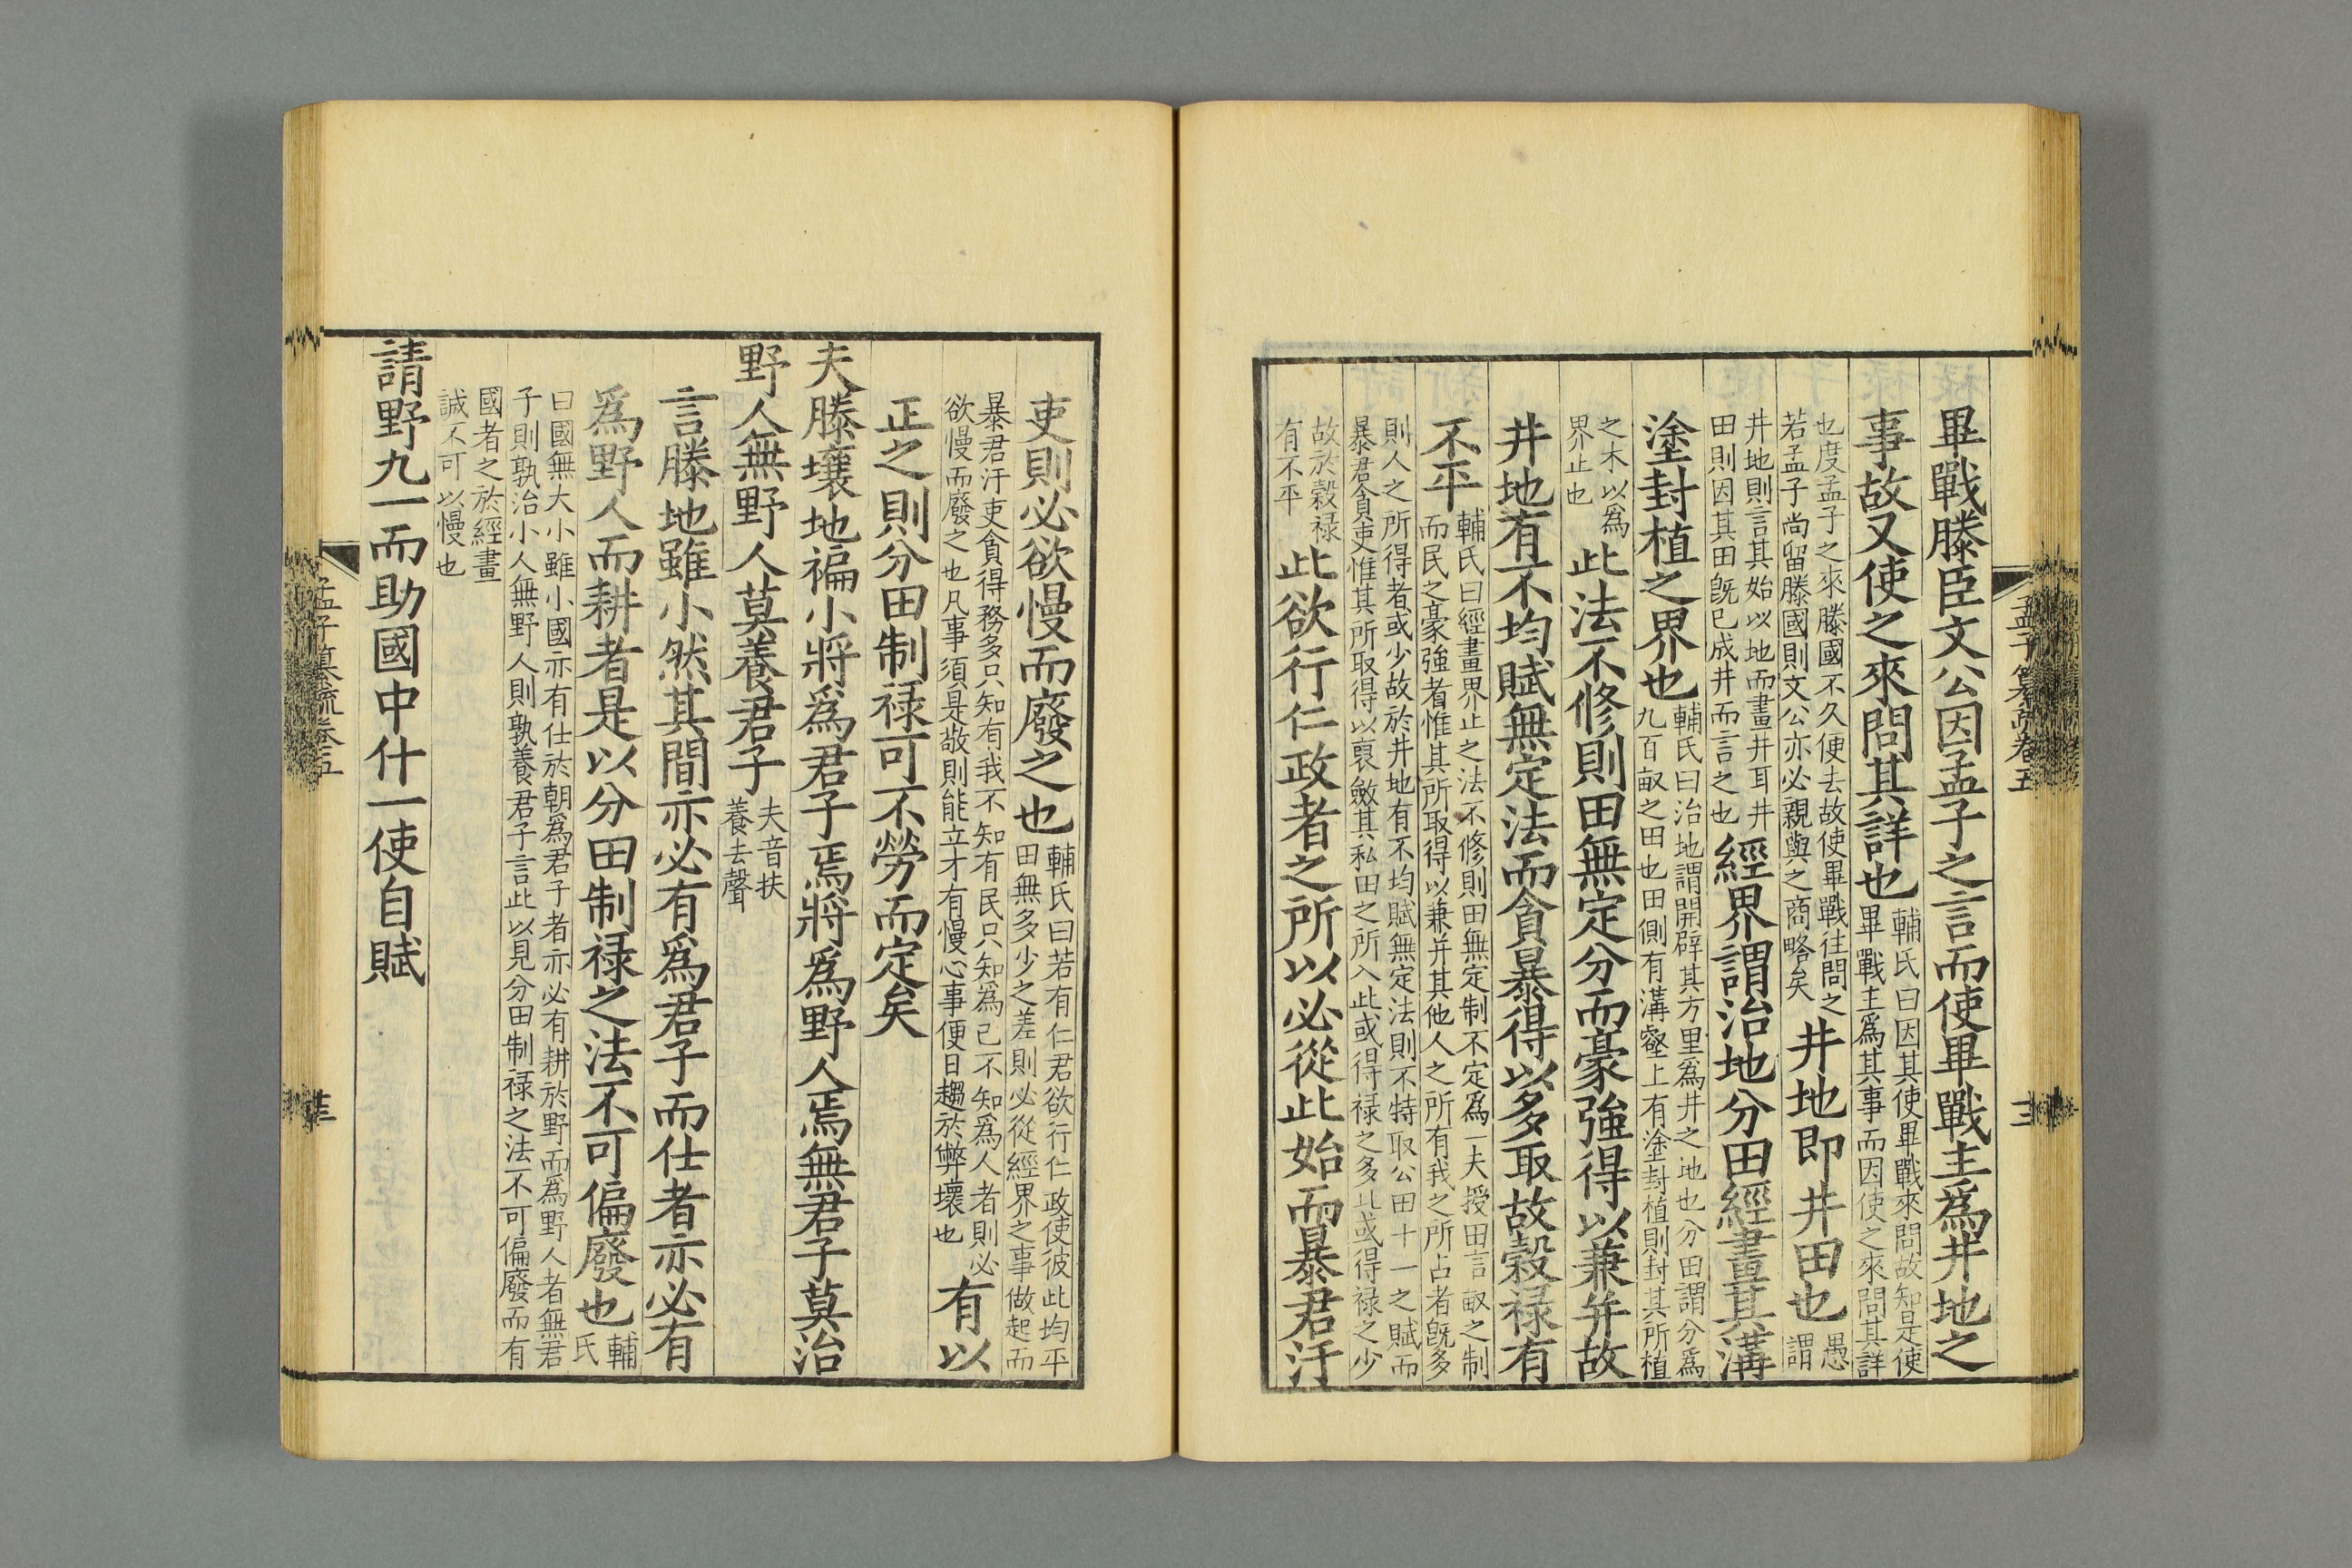 畢戰滕臣文公因孟子之言而使畢戰主爲井地之
事故又使之來問其詳也
輔氏曰因其使畢戰來問故知是使
畢戰主爲其事而因使之來問其詳
也度孟子之來滕國不久便去故使畢戰往問之
若孟子尚留滕國則文公亦必親與之商略矣
井地即井田也
愚
謂
井地則言其始以地而畫井耳井
田則因其田旣已成井而言之也
經界謂治地分田經畫其溝
塗封植之界也
輔氏曰治地謂開辟其方里爲井之地也分田謂分爲
九百畝之田也田側有溝壑上有塗封植則封其所植
之木以爲
界止也
此法不修則田無定分而豪強得以兼并故
井地有不均賦無定法而貪暴得以多取故穀禄有
不平
輔氏曰經畫界止之法不修則田無定制不定爲一夫授田言畝之制
而民之豪強者惟其所取得以兼并其他人之所有我之所占者旣多
則人之所得者或少故於井地有不均賦無定法則不特取公田十一之賦而
暴君貪吏惟其所取得以裒斂其私田之所入此或得禄之多此或得禄之少
故於穀禄
有不平
此欲行仁政者之所以必從此始而暴君汙
孟子纂疏卷五
吏則必欲慢而廢之也
輔氏曰若有仁君欲行仁政使彼此均平
田無多少之差則必從經界之事做起而
暴君汙吏貪得務多只知有我不知有民只知為己不知為人者則必
欲慢而廢之也凡事須是敬則能立才有慢心事便日趨於弊壞也
有以
正之則分田制禄可不勞而定矣
夫滕壤地褊小將爲君子焉將爲野人焉無君子莫治
野人無野人莫養君子
夫音扶
養去聲
言滕地雖小然其間亦必有爲君子而仕者亦必有
爲野人而耕者是以分田制禄之法不可偏廢也
輔
氏
曰國無大小雖小國亦有仕於朝爲君子者亦必有耕於野而爲野人者無君
子則孰治小人無野人則孰養君子言此以見分田制禄之法不可偏廢而有
國者之於經畫
誠不可以慢也
請野九一而助國中什一使自賦
孟子纂疏卷五